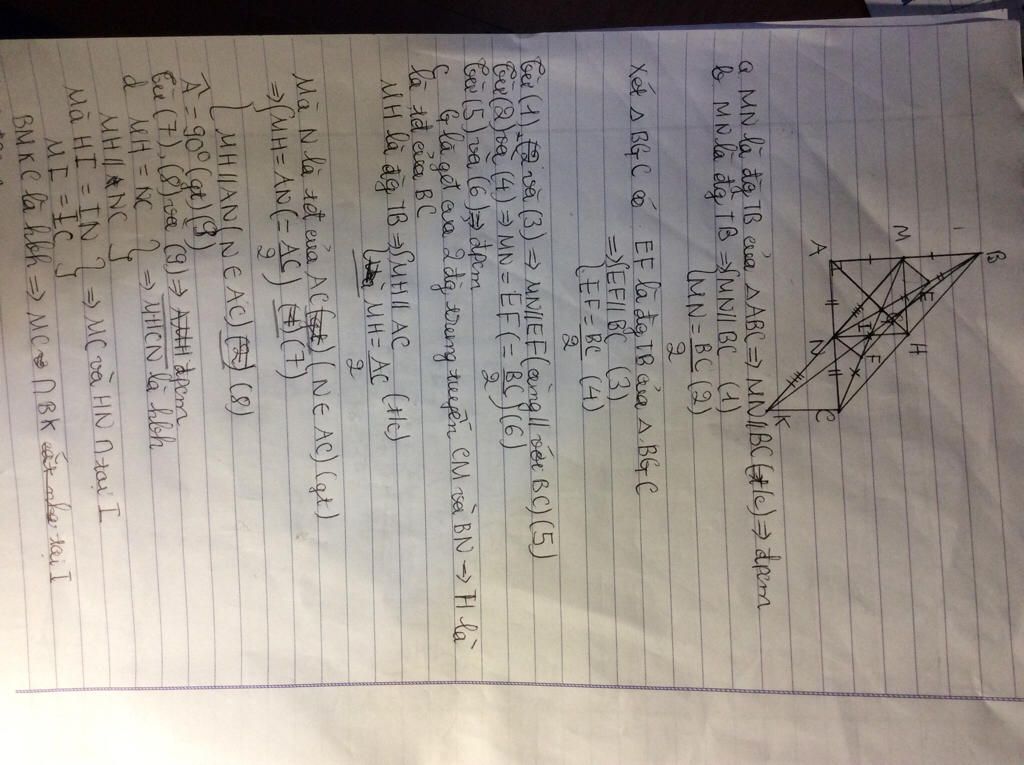 B
M
A
E
H
I
N
F
C
K
a MN là đg TB của △ABC ⇒ MN//BC (t/c) ⇒ đpcm
b MN là đg TB ⇒ { MN//BC (1)
{ MN = BC/2 (2)
Xét △BGC có: EF là đg TB của △BGC
⇒ { EF//BC (3)
{ EF = BC/2 (4)
Từ (1) và (3) ⇒ MN//EF (cùng // với BC) (5)
Từ (2) và (4) ⇒ MN = EF (= BC/2) (6)
Từ (5) và (6) ⇒ đpcm
G là gđ của 2 đg trung tuyến CM và BN → H là
là tđ của BC
MH là đg TB ⇒ { MH//AC
{ MH = AC/2 (t/c)
Mà N là tđ của AC (N ∈ AC) (gt)
⇒ { MH = AN (= AC/2) (7)
{ MH//AN (N ∈ AC) (8)
Â = 90° (gt) (9)
Từ (7), (8) và (9) ⇒ đpcm
d MH = NC
MH // NC } ⇒ MHCN là hbh
MI = IC
Mà HI = IN } ⇒ MC và HN ∩ tại I
BMKC là hbh ⇒ MC ∩ BK tại I